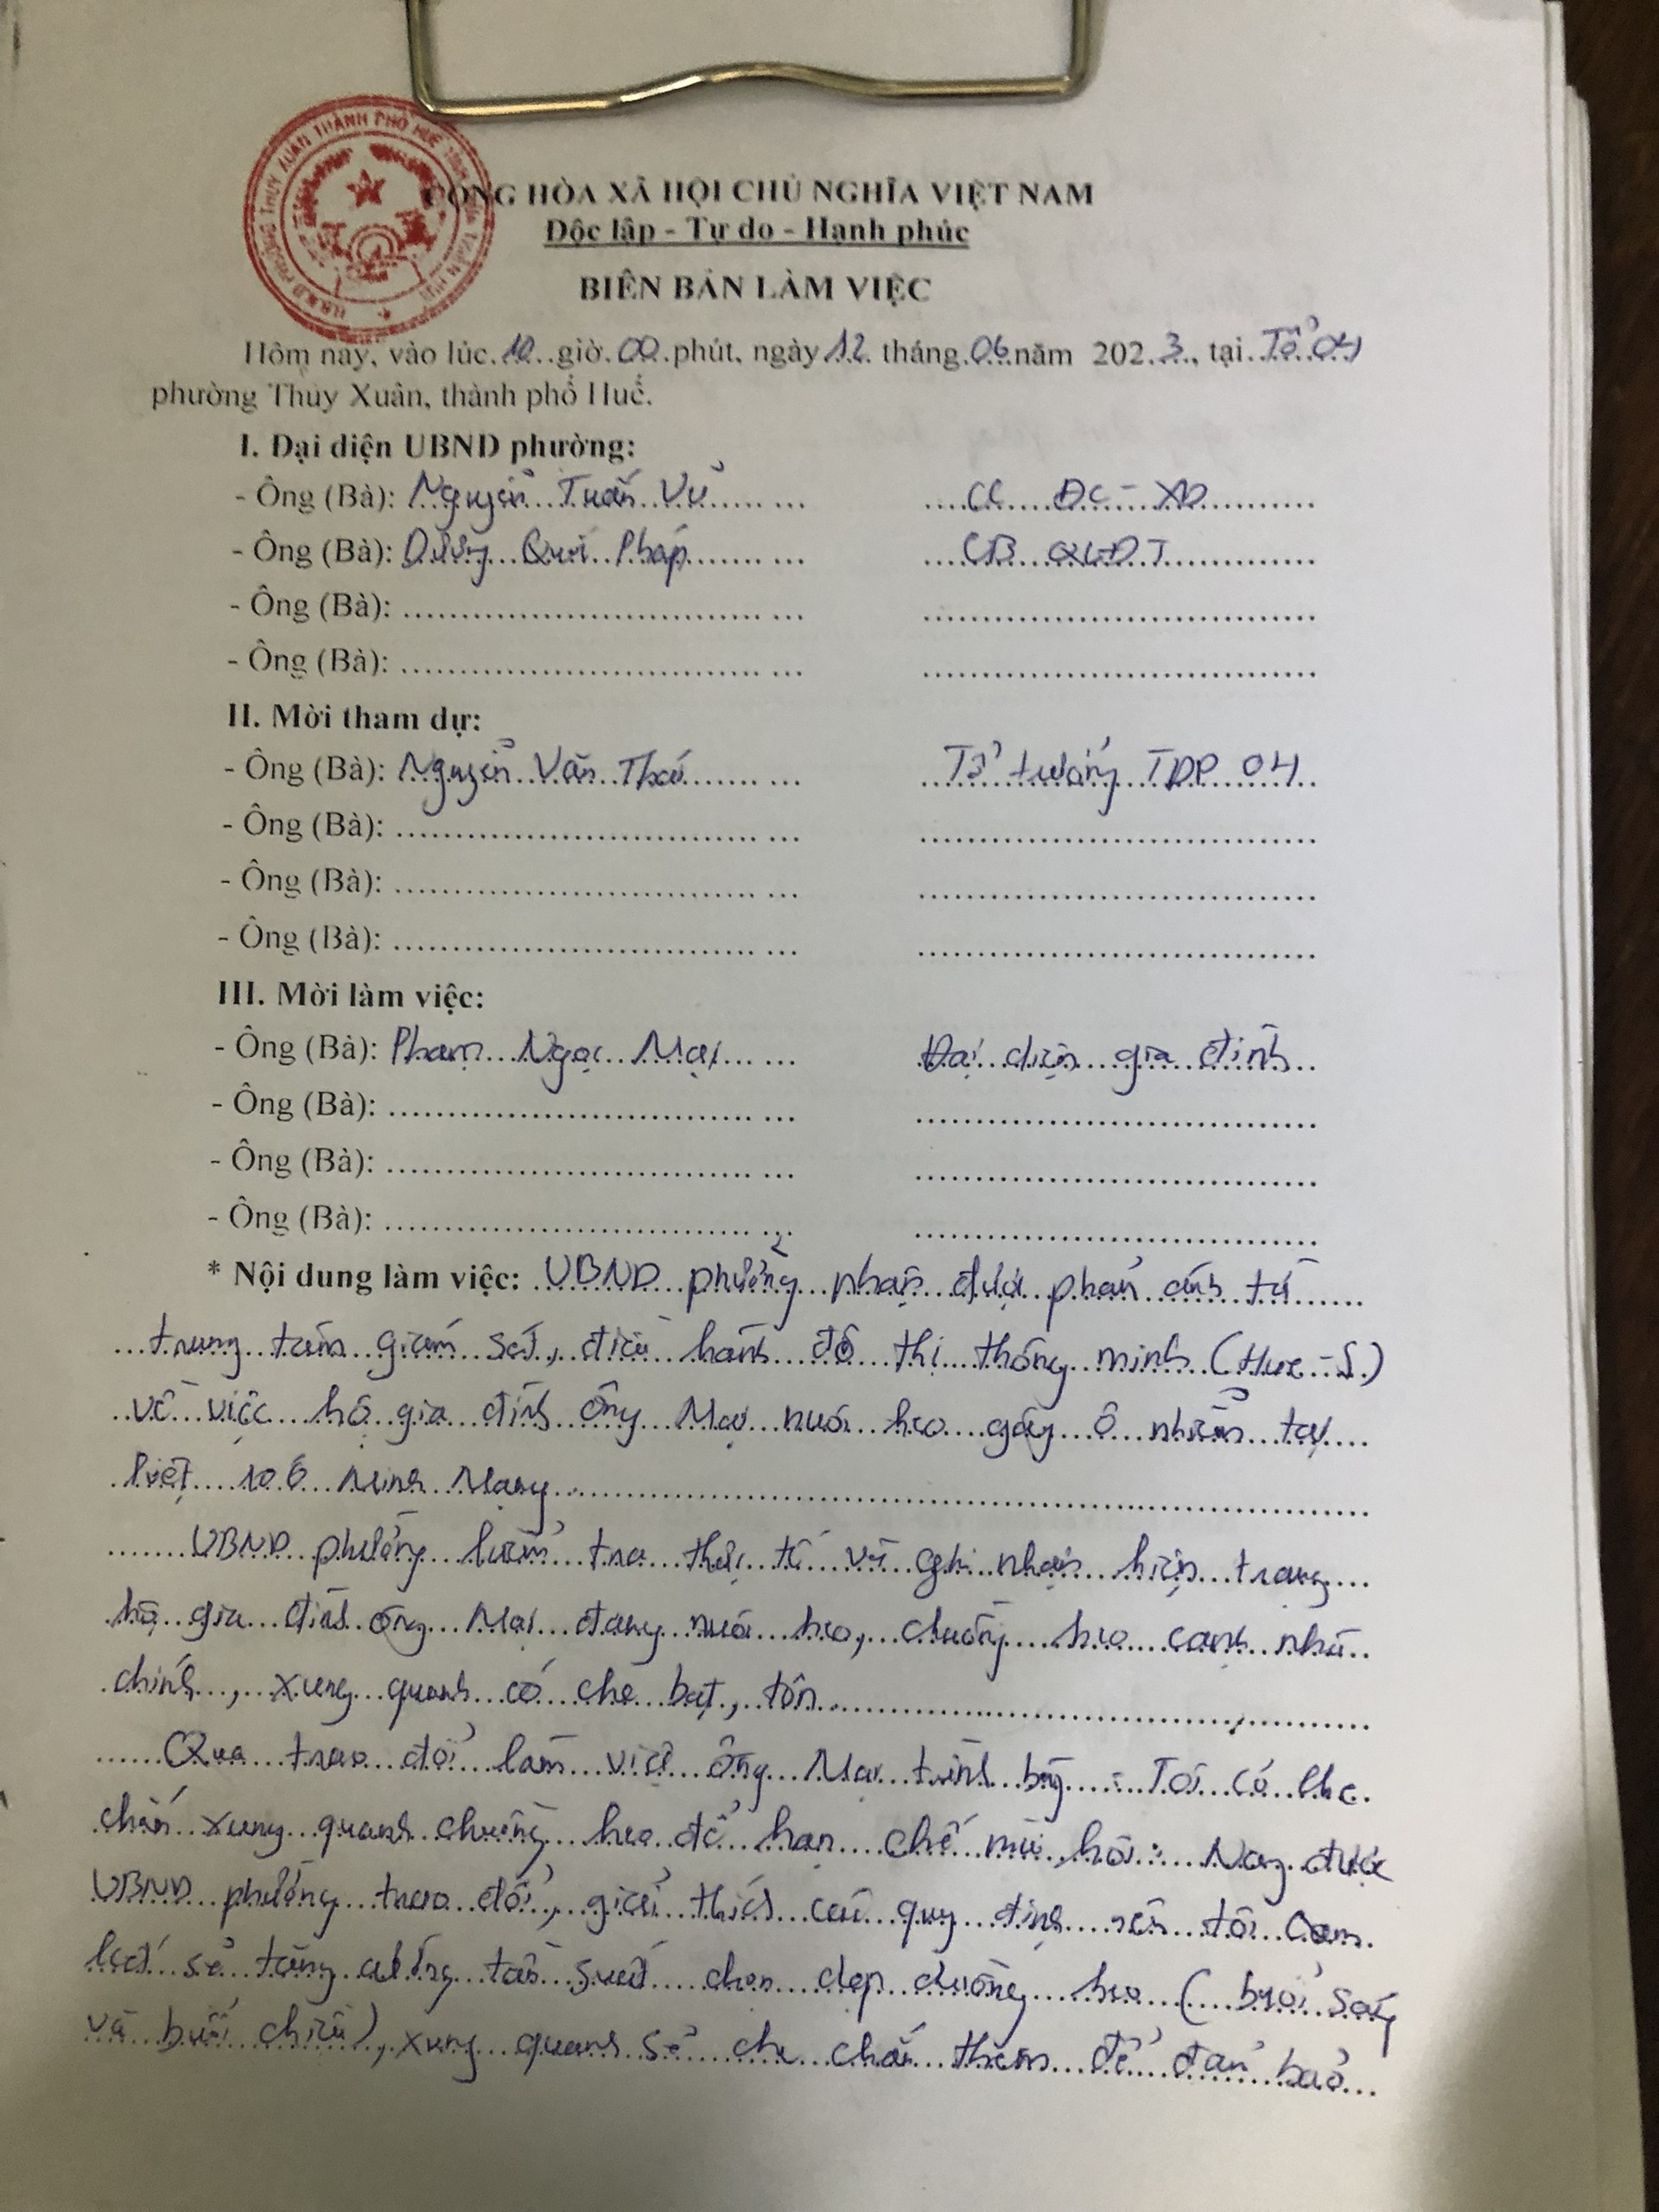 CỘNG HÒA XÃ HỘI CHỦ NGHĨA VIỆT NAM
Độc lập - Tự do - Hạnh phúc
BIÊN BẢN LÀM VIỆC
Hôm nay, vào lúc 10 giờ 00 phút, ngày 12 tháng 06 năm 2023, tại Tổ 04
phường Thủy Xuân, thành phố Huế.
I. Đại diện UBND phường:
- Ông (Bà): Nguyễn Tuấn Vũ ... CC ĐC - XD
- Ông (Bà): Quí Pháp ... CB QLĐT
- Ông (Bà): ...
- Ông (Bà): ...
II. Mời tham dự:
- Ông (Bà): Nguyễn Văn ... Tổ trưởng TDP 04
- Ông (Bà): ...
- Ông (Bà): ...
- Ông (Bà): ...
III. Mời làm việc:
- Ông (Bà): Phạm Ngọc Mại ... Đại diện gia đình
- Ông (Bà): ...
- Ông (Bà): ...
- Ông (Bà): ...
* Nội dung làm việc: UBND phường nhận được phản ánh từ
trung tâm giám sát, điều hành đô thị thông minh (Hue-S)
về việc hộ gia đình ông Mại nuôi heo gây ô nhiễm tại
kiệt 106 Minh Mạng
UBND phường kiểm tra thực tế và ghi nhận hiện trạng
hộ gia đình ông Mại đang nuôi heo, chuồng heo cạnh nhà
chính, xung quanh có che bạt, tôn
Qua trao đổi làm việc ông Mại trình bày: Tôi có che
chắn xung quanh chuồng heo để hạn chế mùi hôi. Nay được
UBND phường trao đổi, giải thích các quy định nên tôi cam
kết sẽ tăng cường tần suất dọn dẹp chuồng heo (buổi sáng
và buổi chiều), xung quanh sẽ che chắn thêm để đảm bảo